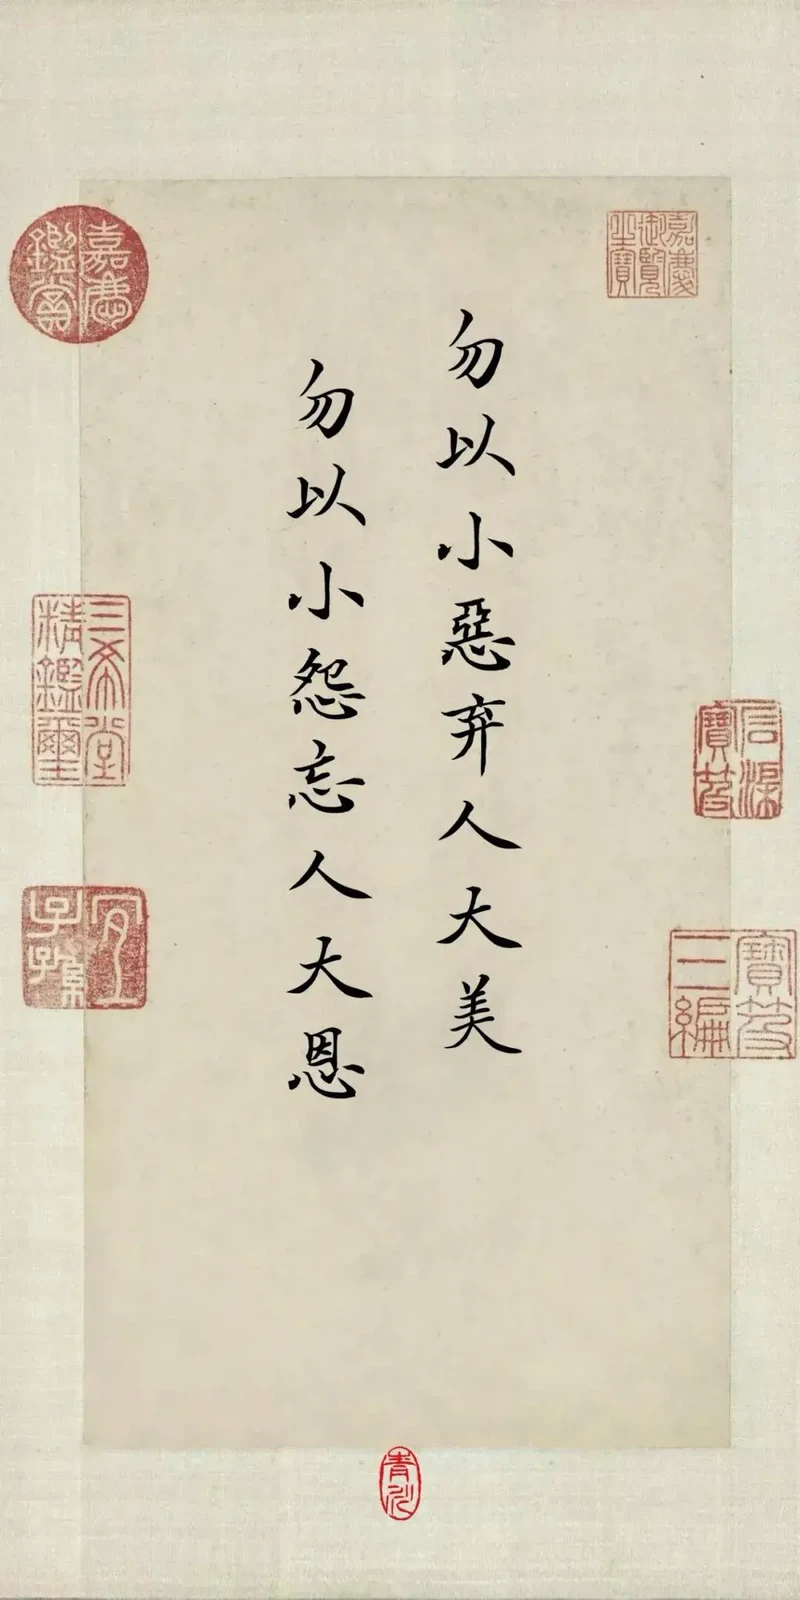 勿以小惡弃人大美
勿以小怨忘人大恩
嘉慶御覽之寶
嘉慶鑑賞
三希堂精鑑璽
宜子孫
石渠寶笈
寶笈三編